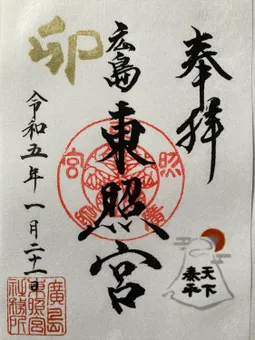 奉拝
広島東照宮
卯
令和五年一月二十一日
天下
泰平
廣島
東照宮
社務所